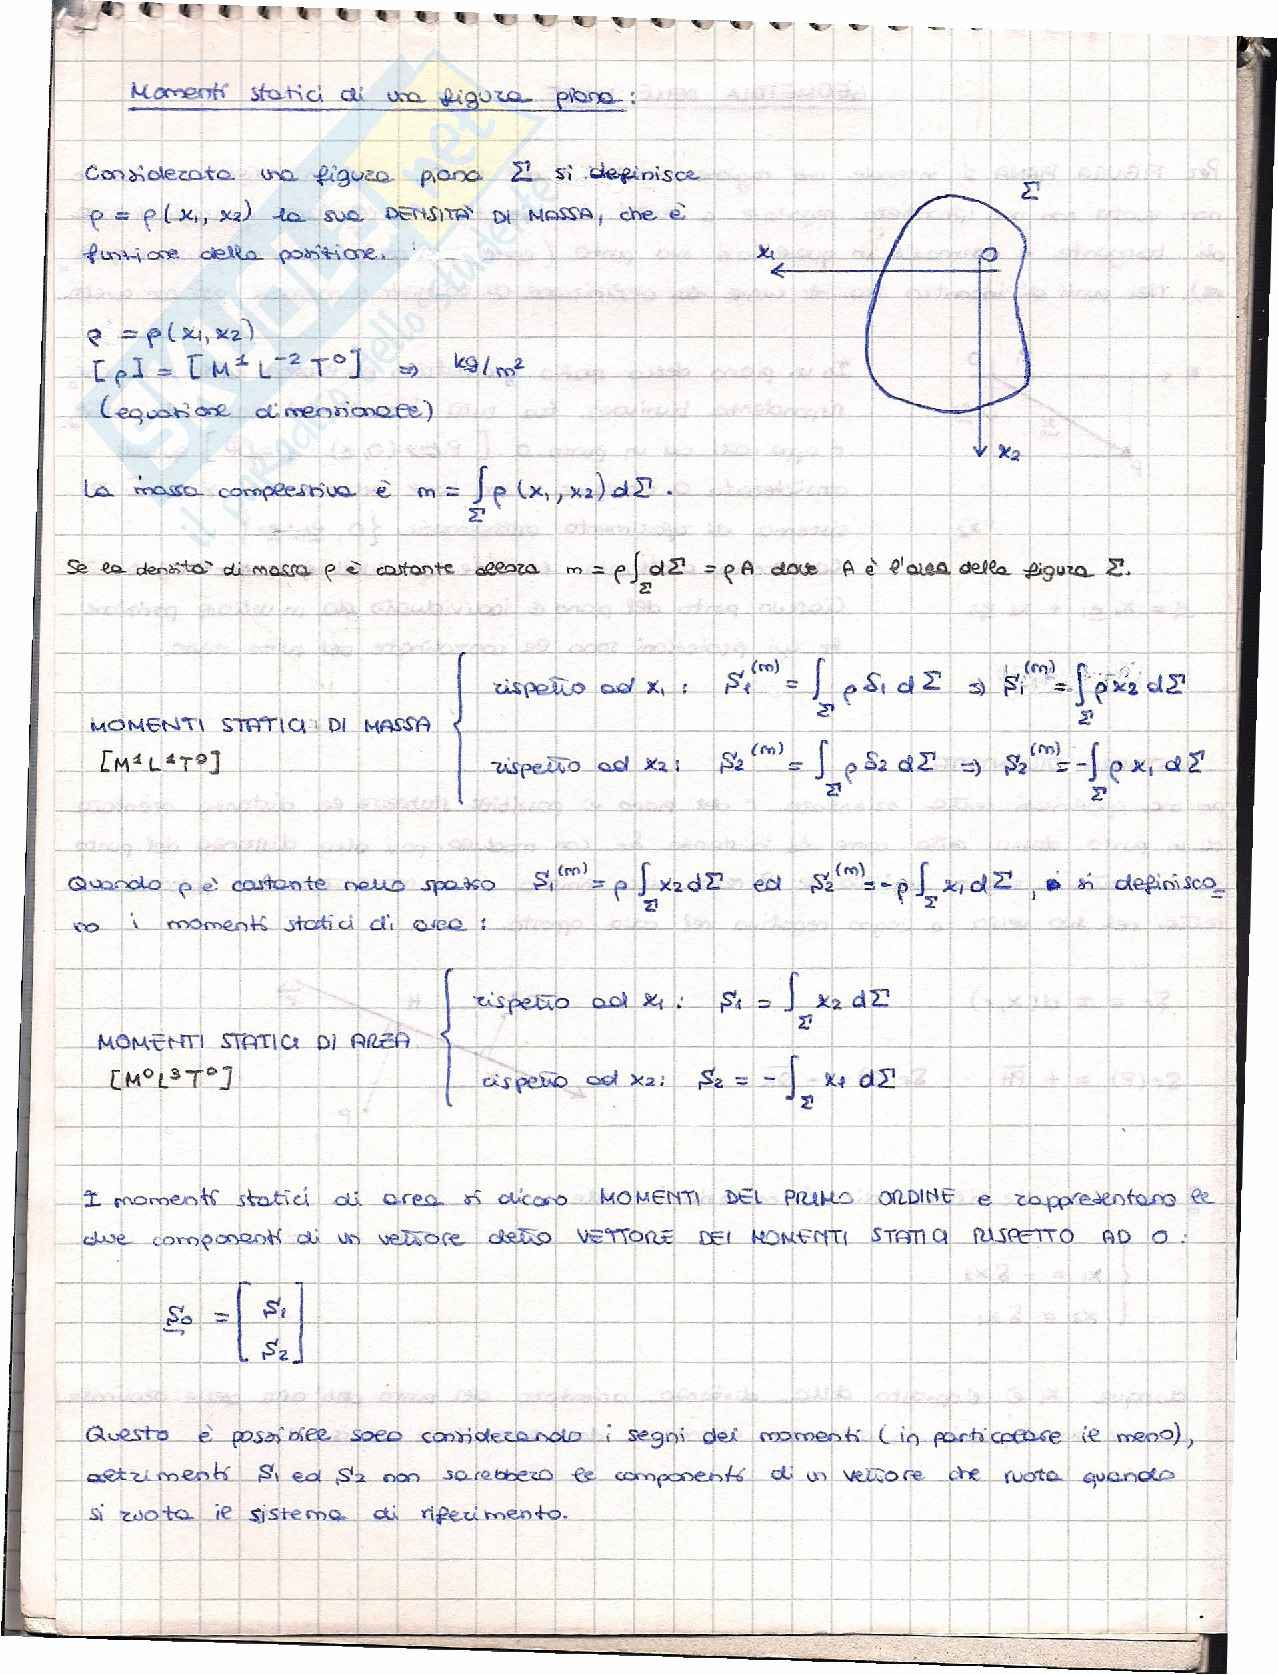 Momenti statici di una figura piana:
Considerata una figura piana Σ si definisce
ρ = ρ(x₁, x₂) la sua DENSITÀ DI MASSA, che è
funzione della posizione.
Σ
x₁
O
x₂
ρ = ρ(x₁, x₂)
[ρ] = [M¹ L⁻² T⁰] ⇒ kg/m²
(equazione dimensionale)
La massa complessiva è m = ∫_Σ ρ(x₁, x₂) dΣ.
Se la densità di massa ρ è costante allora m = ρ∫_Σ dΣ = ρA dove A è l'area della figura Σ.
rispetto ad x₁: S₁⁽ᵐ⁾ = ∫_Σ ρ δ₁ dΣ ⇒ S₁⁽ᵐ⁾ = ∫_Σ ρ x₂ dΣ
MOMENTI STATICI DI MASSA
[M¹L¹T⁰]
rispetto ad x₂: S₂⁽ᵐ⁾ = ∫_Σ ρ δ₂ dΣ ⇒ S₂⁽ᵐ⁾ = -∫_Σ ρ x₁ dΣ
Quando ρ è costante nello spazio S₁⁽ᵐ⁾ = ρ∫_Σ x₂ dΣ ed S₂⁽ᵐ⁾ = -ρ∫_Σ x₁ dΣ, si definisco=
no i momenti statici di area:
rispetto ad x₁: S₁ = ∫_Σ x₂ dΣ
MOMENTI STATICI DI AREA
[M⁰L³T⁰]
rispetto ad x₂: S₂ = -∫_Σ x₁ dΣ
I momenti statici di area si dicono MOMENTI DEL PRIMO ORDINE e rappresentano le
due componenti di un vettore detto VETTORE DEI MOMENTI STATICI RISPETTO AD O:
S₀ = [S₁
S₂]
Questo è possibile solo considerando i segni dei momenti (in particolare il meno),
altrimenti S₁ ed S₂ non sarebbero le componenti di un vettore che ruota quando
si ruota il sistema di riferimento.